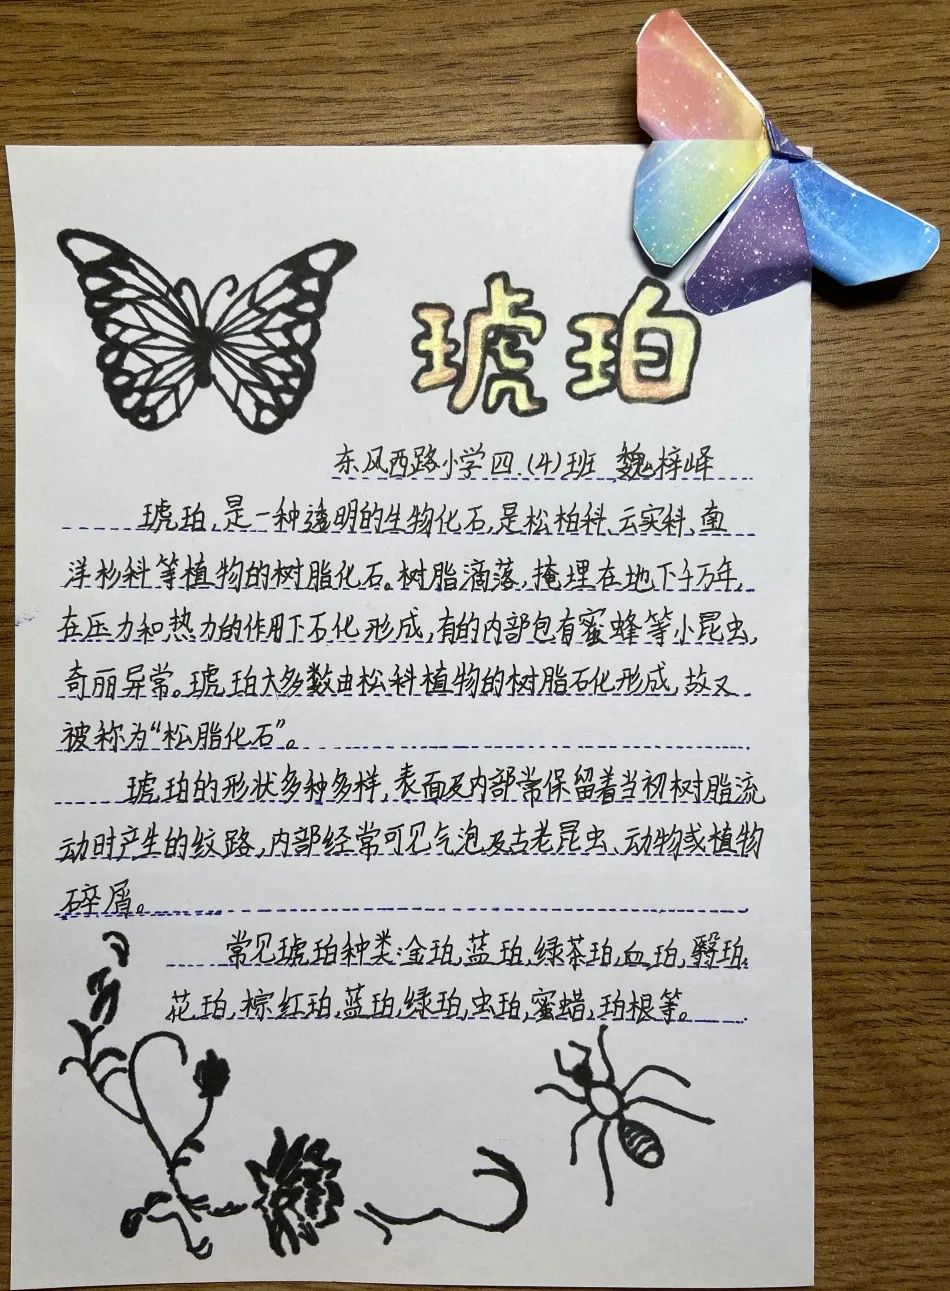 琥珀
东风西路小学四(4)班 魏梓峄
琥珀,是一种透明的生物化石,是松柏科、云实科、南
洋杉科等植物的树脂化石。树脂滴落,掩埋在地下千万年,
在压力和热力的作用下石化形成,有的内部包有蜜蜂等小昆虫,
奇丽异常。琥珀大多数由松科植物的树脂石化形成,故又
被称为“松脂化石”。
琥珀的形状多种多样,表面及内部常保留着当初树脂流
动时产生的纹路,内部经常可见气泡及古老昆虫、动物或植物
碎屑。
常见琥珀种类:金珀,蓝珀,绿茶珀,血珀,翳珀,
花珀,棕红珀,蓝珀,绿珀,虫珀,蜜蜡,珀根等。